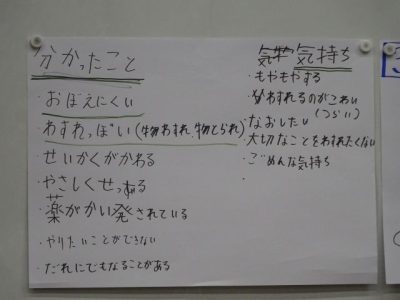 分かったこと
・おぼえにくい
・わすれっぽい(物わすれ、物とられ)
・せいかくがかわる
・やさしくせっする
・薬がかい発されている
・やりたいことができない
・だれにでもなることがある
気持ち
・もやもやする
・わすれるのがこわい
(つらい)
・なおしたい
・大切なことをわすれたくない
・ごめんな気持ち
・